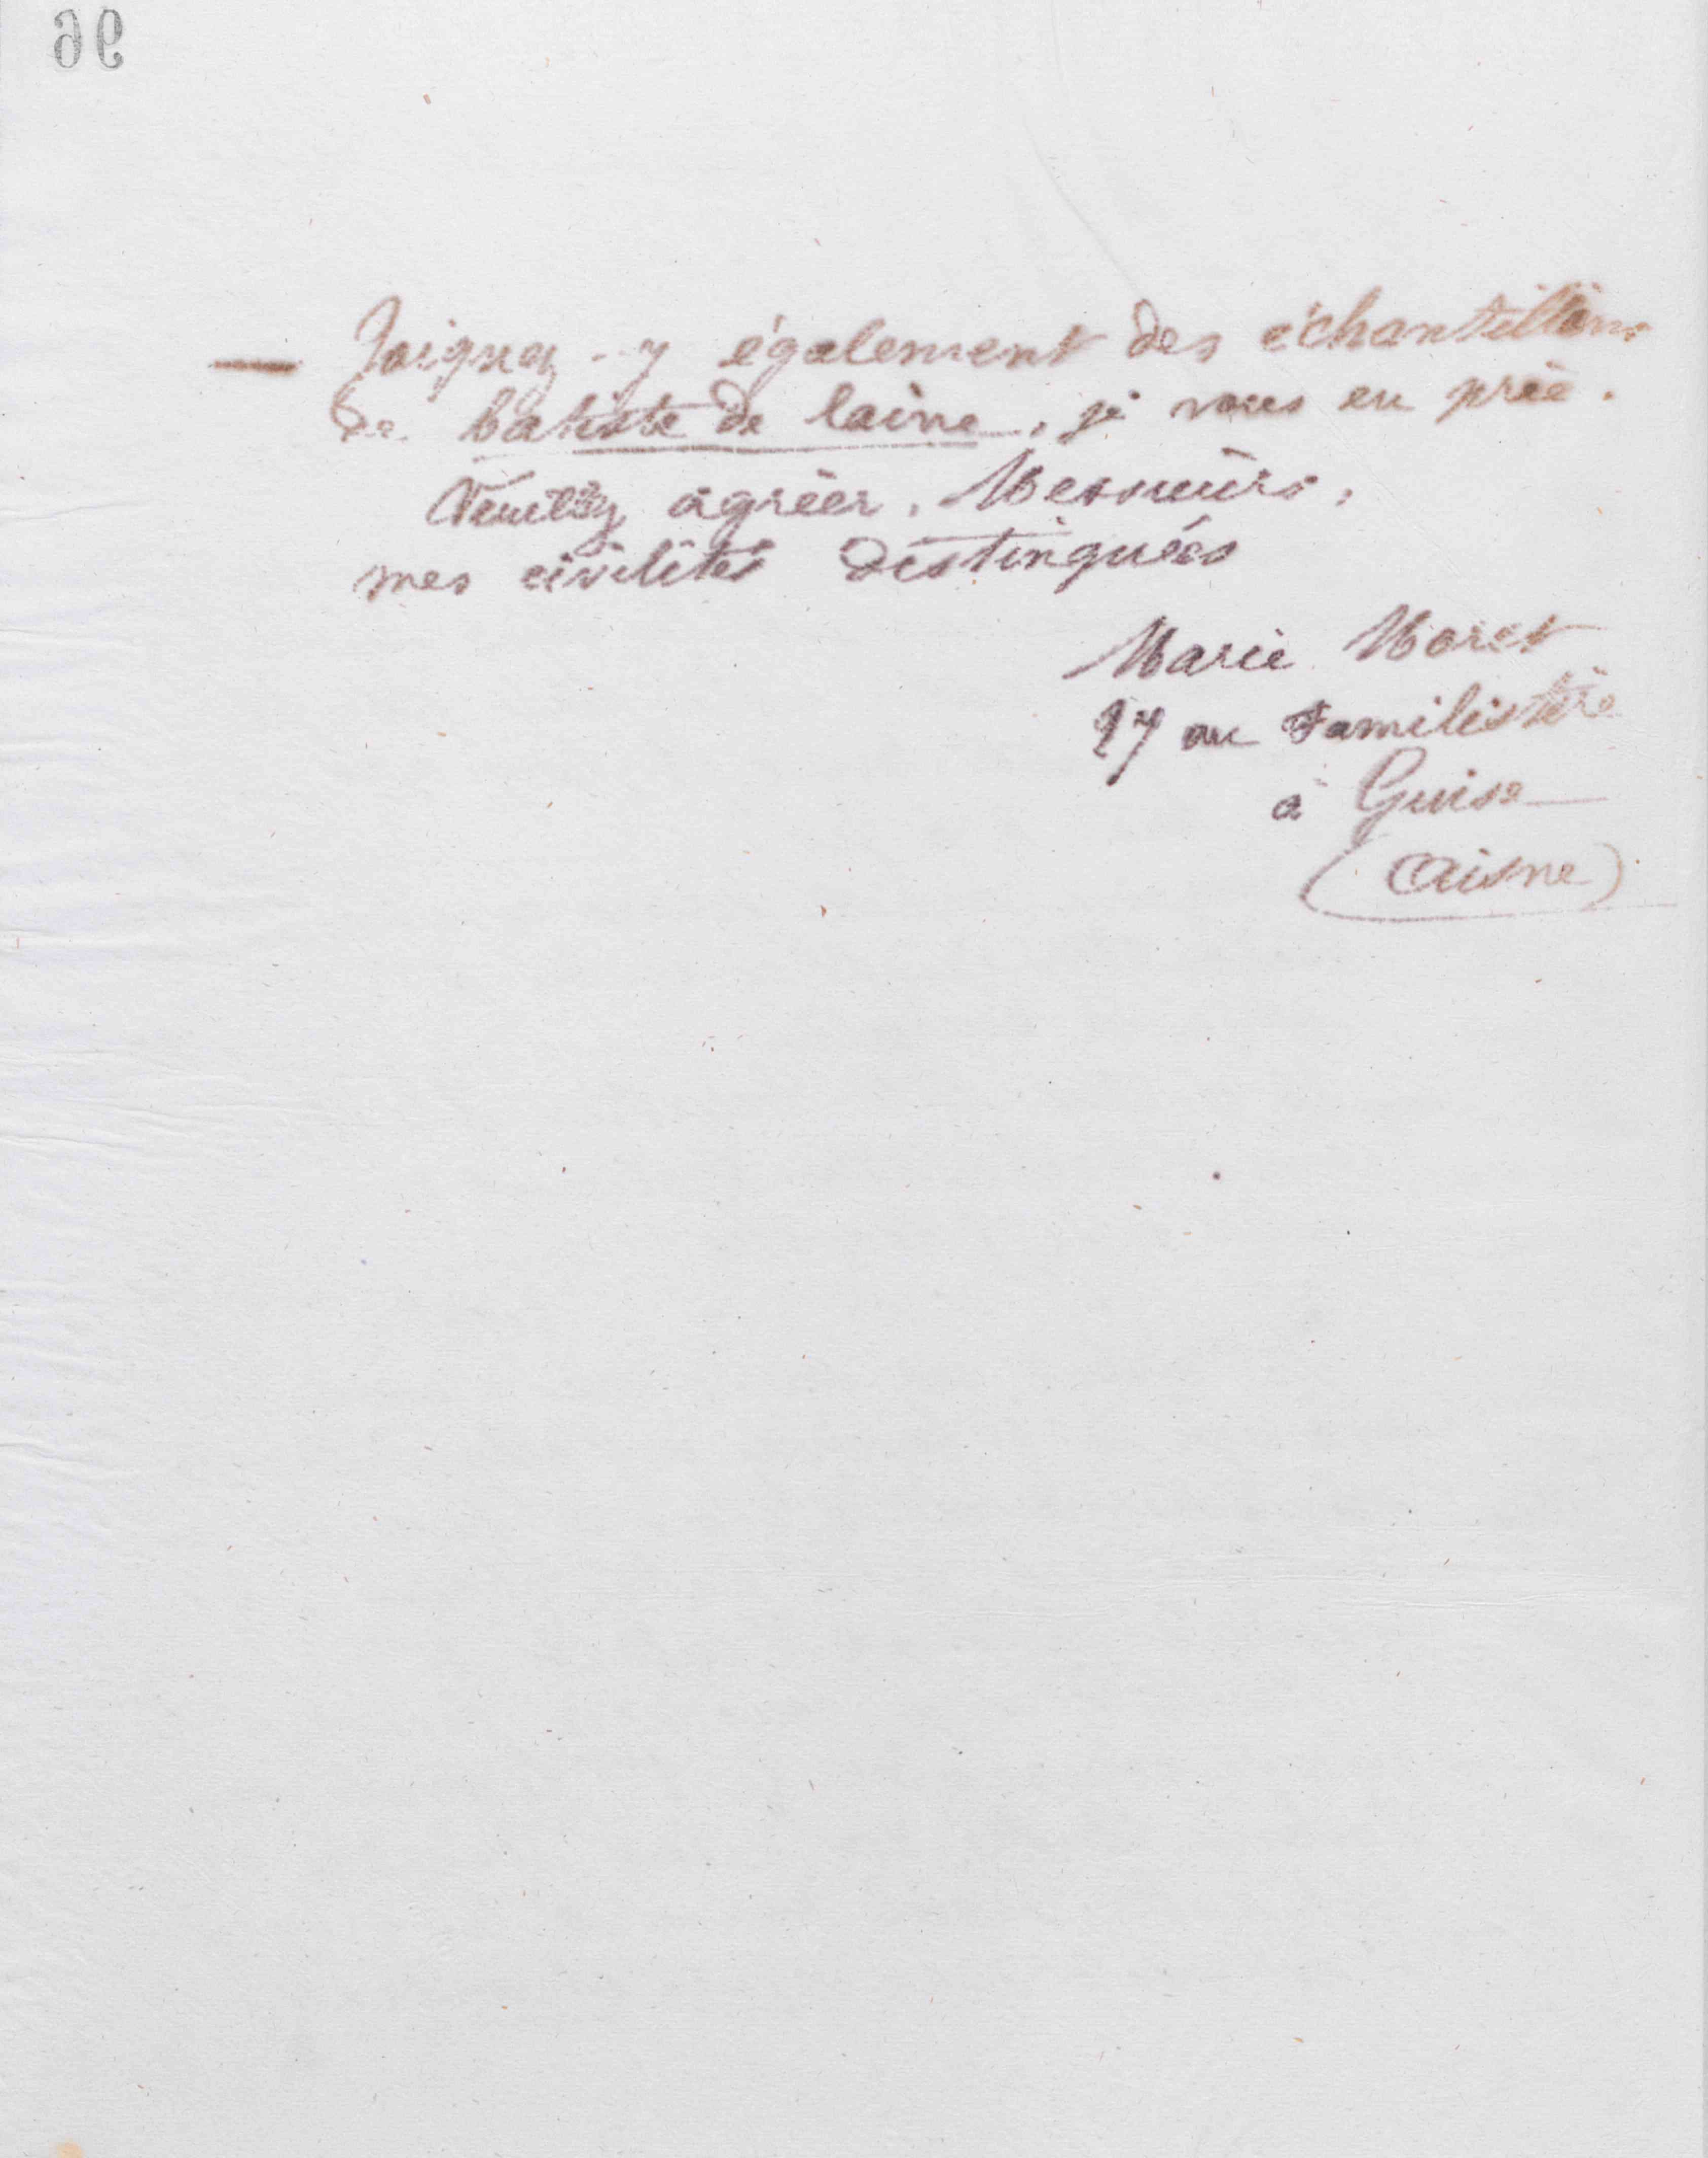 96
— Joignez-y également des échantillons
de batiste de laine, je vous en prie.
Veuillez agréer, Messieurs,
mes civilités distinguées
Marie Moret
27 au Familistère
à Guise
(Aisne)